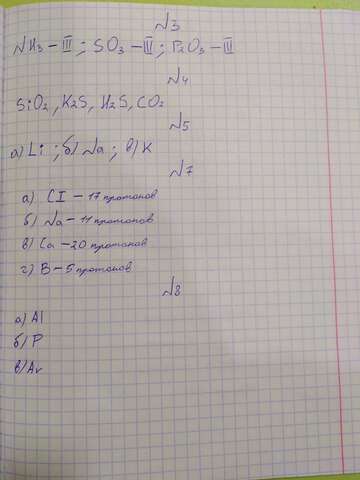 №3
NH3 – III ; SO3 – III ; P2O3 – III
№4
SiO2, K2S, H2S, CO2
№5
а) Li ; б) Na ; в) K
№7
а) Cl – 17 протонов
б) Na – 11 протонов
в) Ca – 20 протонов
г) B – 5 протонов
№8
а) Al
б) P
в) Ar